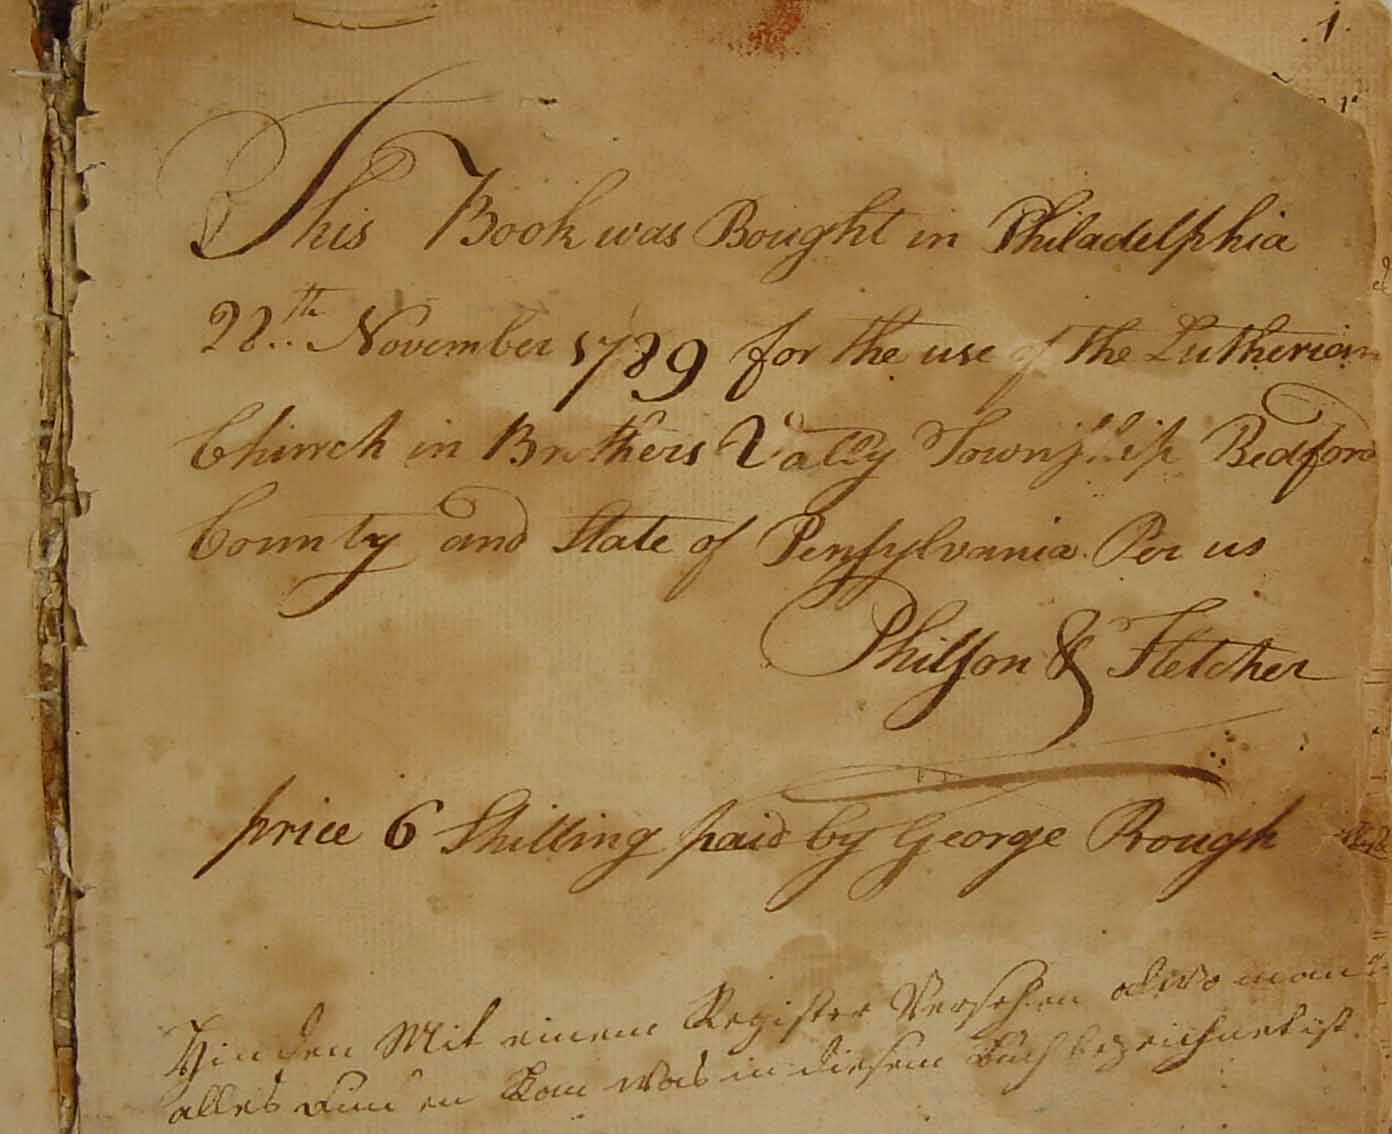 .1.
This Book was Bought in Philadelphia
28th November 1789 for the use of the Lutherian
Church in Brothers Vally Township Bedford
County and State of Pensylvania. Per us
Philson & Fletcher
price 6 Shilling paid by George Rough
Hinden Mit einem Register Versehen alwo man
alles finden kan was in diesem Buch bezeichnet ist.